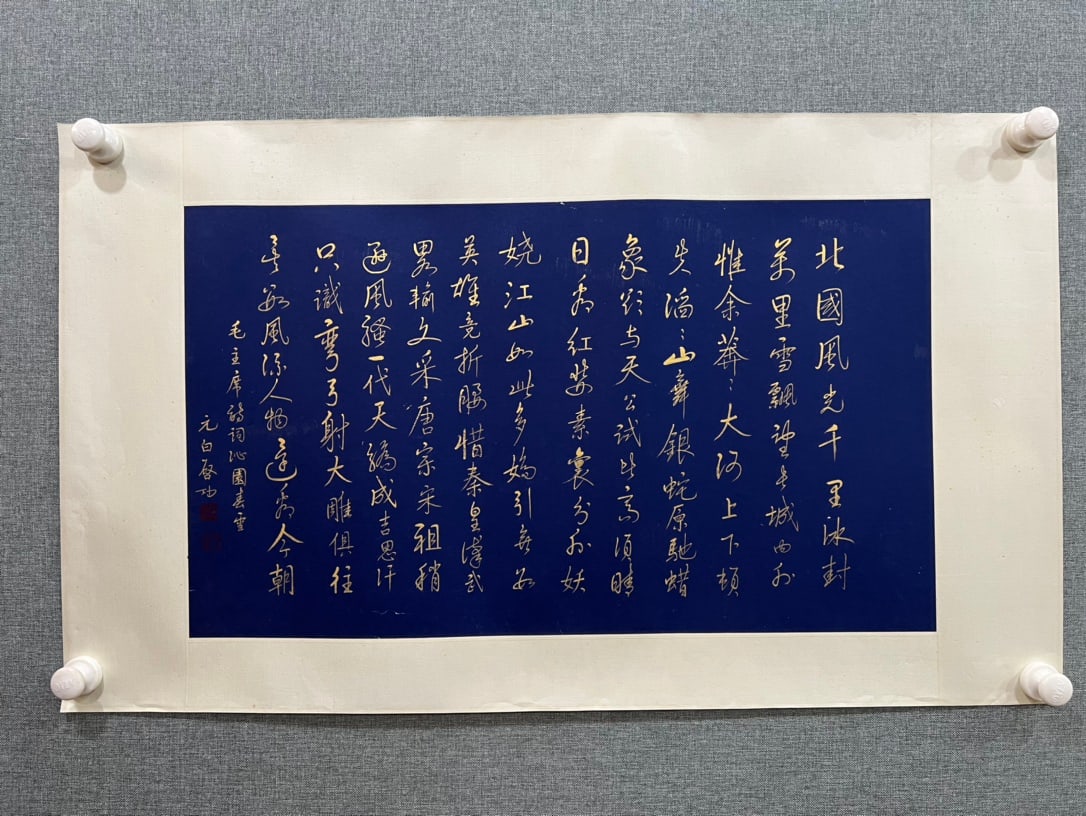 北國風光千里冰封
萬里雪飄望長城内外
惟余莽〻大河上下頓
失滔〻山舞銀蛇原馳蜡
象欲与天公試比高須晴
日看红裝素裹分外妖
娆江山如此多嬌引無数
英雄竞折腰惜秦皇漢武
畧輸文采唐宗宋祖稍
遜風騷一代天驕成吉思汗
只識彎弓射大雕俱往
矣数風流人物还看今朝
毛主席詩詞沁園春雪
元白啓功